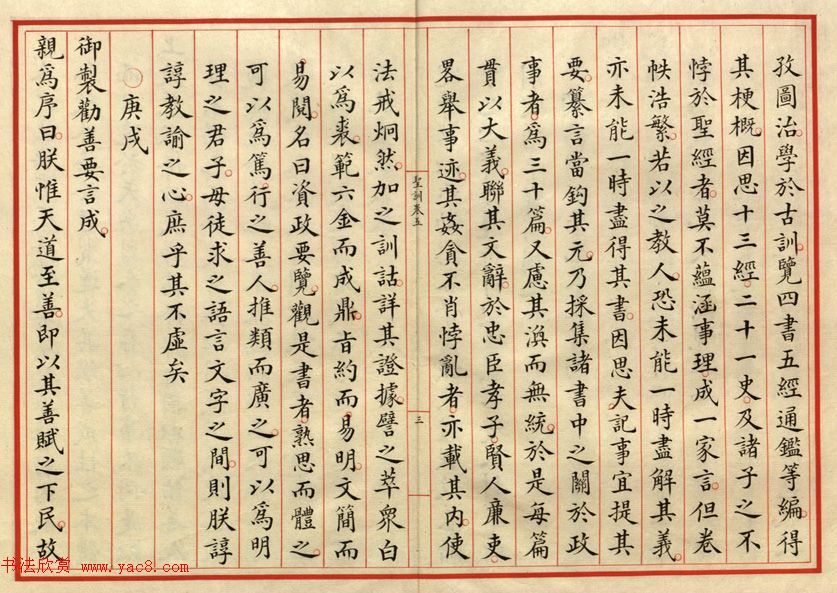 孜圖治學於古訓覽四書五經通鑑等編得
其梗概因思十三經二十一史及諸子之不
悖於聖經者莫不蘊涵事理成一家言但卷
帙浩繁若以之教人恐未能一時盡解其義
亦未能一時盡得其書因思夫記事宜提其
要纂言當鉤其元乃採集諸書中之關於政
事者為三十篇又慮其渙而無統於是每篇
貫以大義聯其文辭於忠臣孝子賢人廉吏
畧舉事迹其姦貪不肖悖亂者亦載其內使
聖訓卷五
三
法戒炯然加之訓詁詳其證據譬之萃衆白
以為裘範六金而成鼎旨約而易明文簡而
易閱名曰資政要覽觀是書者熟思而體之
可以為篤行之善人推類而廣之可以為明
理之君子毋徒求之語言文字之間則朕諄
諄教諭之心庶乎其不虛矣
○庚戌
御製勸善要言成
親為序曰朕惟天道至善即以其善賦之下民故
书法欣赏 www.yac8.com